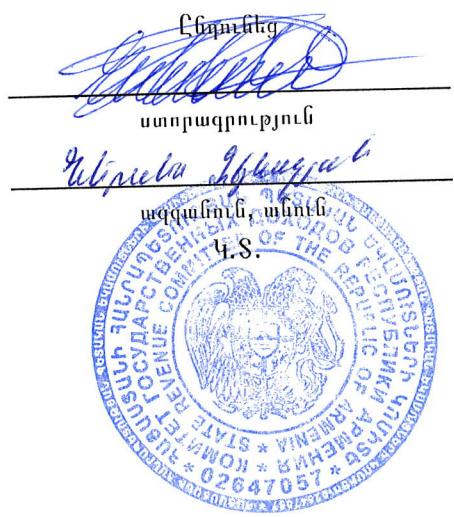 Ընդունեց
ստորագրություն
ազգանուն, անուն
Կ.Տ.
ՀԱՅԱՍՏԱՆԻ ՀԱՆՐԱՊԵՏՈՒԹՅԱՆ ՊԵՏԱԿԱՆ ԵԿԱՄՈՒՏՆԵՐԻ ԿՈՄԻՏԵ
КОМИТЕТ ГОСУДАРСТВЕННЫХ ДОХОДОВ РЕСПУБЛИКИ АРМЕНИЯ
STATE REVENUE COMMITTEE OF THE REPUBLIC OF ARMENIA
* 02647057 *